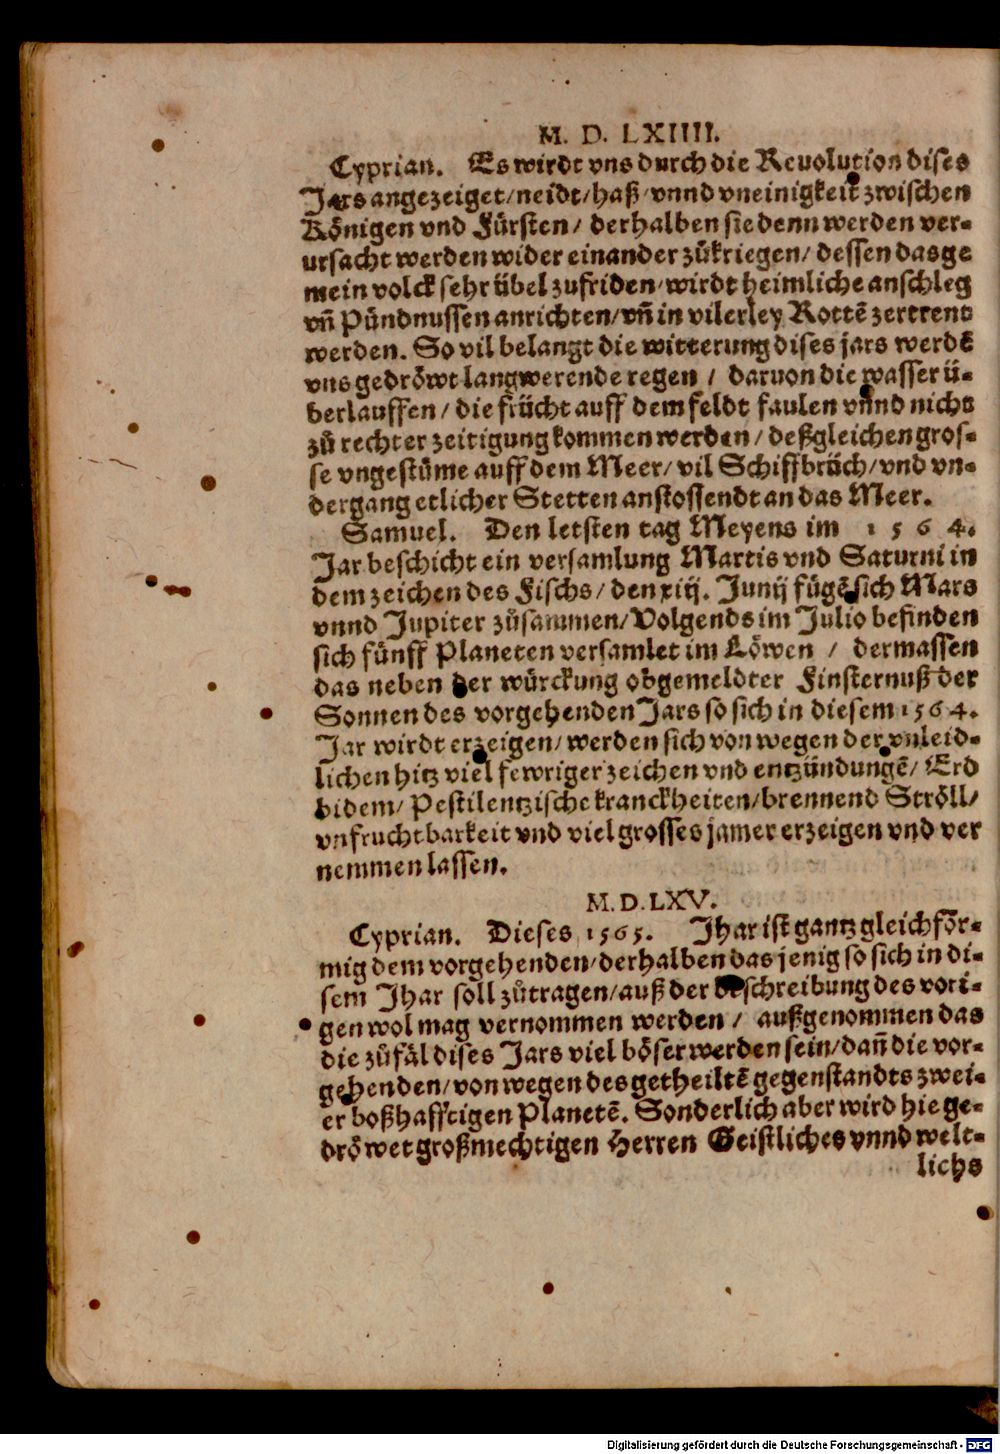 M. D. LXIIII.
Cyprian. Es wirdt vns durch die Reuolution dises
Jars angezeiget/neidt/haß/vnnd vneinigkeit zwischen
Königen vnd Fürsten/ derhalben sie denn werden ver-
ursacht werden wider einander zůkriegen/ dessen das ge
mein volck sehr übel zufriden/wirdt heimliche anschleg
vñ Pündnussen anrichten/vñ in vilerley Rottẽ zertrent
werden. So vil belangt die witterung dises jars werdẽ
vns gedröwt langwerende regen / daruon die wasser ü-
berlauffen/ die frücht auff dem feldt faulen vnnd nicht
zů rechter zeitigung kommen werden/ deßgleichen gros-
se vngestüme auff dem Meer/ vil Schiffbrüch/vnd vn-
dergang etlicher Stetten anstossendt an das Meer.
Samuel. Den letsten tag Meyens im 1 5 6 4.
Jar beschicht ein versamlung Martis vnd Saturni in
dem zeichen des Fischs/ den xiij. Junij fügẽ sich Mars
vnnd Jupiter zůsammen/Volgends im Julio befinden
sich fünff Planeten versamlet im Löwen / dermassen
das neben der würckung obgemeldter Finsternuß der
Sonnen des vorgehenden Jars so sich in diesem 1564.
Jar wirdt erzeigen/werden sich von wegen der vnleid-
lichen hitz viel fewriger zeichen vnd entzündungẽ/ Erd
bidem/ Pestilentzische kranckheiten/brennend Ströll/
vnfruchtbarkeit vnd viel grosses jamer erzeigen vnd ver
nemmen lassen.
M.D.LXV.
Cyprian. Dieses 1565. Jhar ist gantz gleichför-
mig dem vorgehenden/derhalben das jenig so sich in di-
sem Jhar soll zůtragen/auß der beschreibung des vori-
gen wol mag vernommen werden/ außgenommen das
die zůfäl dises Jars viel böser werden sein/dañ die vor-
gehenden/von wegen des getheiltẽ gegenstandts zwei-
er boßhafftigen Planetẽ. Sonderlich aber wird hie ge-
dröwet großmechtigen Herren Geistliches vnnd welt-
lichs
Digitalisierung gefördert durch die Deutsche Forschungsgemeinschaft - DFG